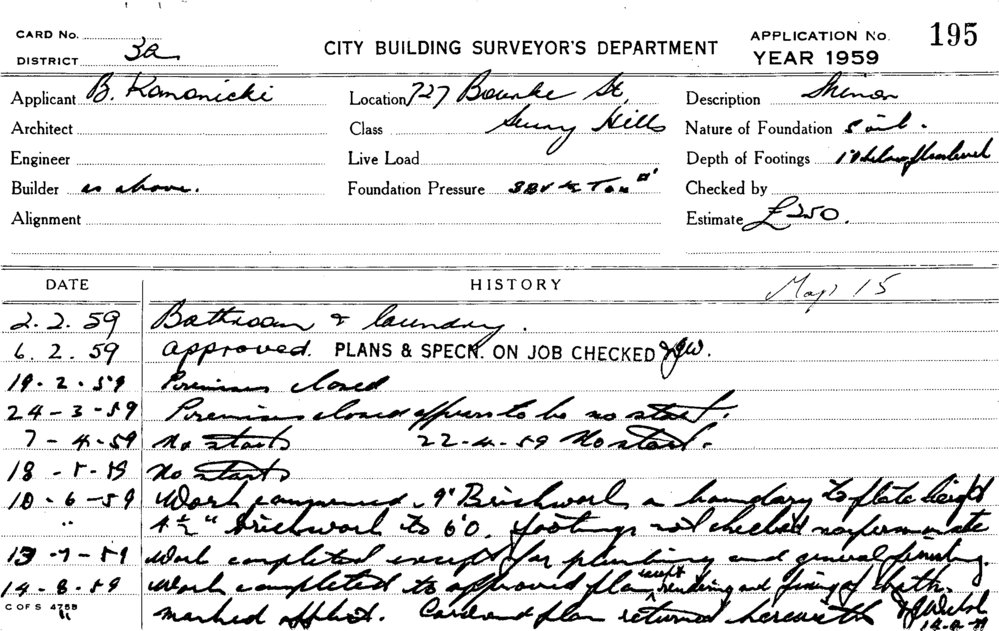 CARD No.
DISTRICT 3a
CITY BUILDING SURVEYOR'S DEPARTMENT
APPLICATION No. 195
YEAR 1959
Applicant B. Kanonicki Location 727 Bourke St. Description Minor
Architect Class Surry Hills Nature of Foundation Soil.
Engineer Live Load Depth of Footings
Builder as above. Foundation Pressure Checked by
Alignment Estimate £250.
DATE HISTORY Map 15
2.2.59 Bathroom & laundry.
6.2.59 Approved. PLANS & SPECN. ON JOB CHECKED
19-2-59 Premises closed
24-3-59 Premises closed appears to be no start.
7-4-59 No start 22-4-59 No start.
18-5-59 No start
10-6-59 Work commenced 9" Brickwork on boundary to plate height
" 4½" brickwork to 6'0. footings not checked
13-7-59 Work completed except for plumbing and general finishing.
14-8-59 Work completed to approved plan except rendering and fixing of bath.
C OF S 475B
" marked off list. Card and plan returned herewith